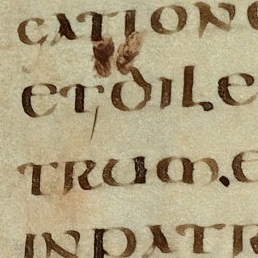 CATION
ETDILE
TRUM·E
INPATR